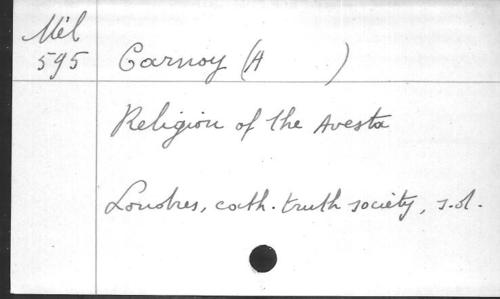 Mél
595
Carnoy (A )
Religion of the Avesta
Londres, cath. truth society, s.d.